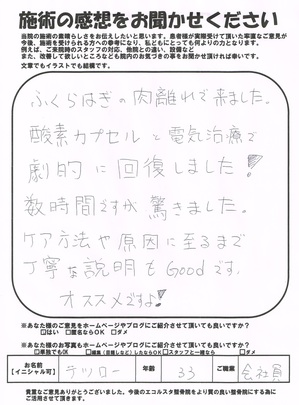 施術の感想をお聞かせください
当院の施術の素晴らしさをお伝えしたいと思います。患者様が実際受けて頂いた率直なご意見が
今後、施術を受けられる方への参考になり、私どもにとっても何よりの力となります。
例えば、ご来院時のスタッフの対応、他院との違い、設備など
また、改善して欲しいところなども院内のお気づきの事をお聞かせ頂ければ幸いです。
文章でもイラストでも結構です。
ふくらはぎの肉離れで来ました。
酸素カプセルと電気治療で
劇的に回復しました!
数時間ですが驚きました。
ケア方法や原因に至るまで
丁寧な説明もGoodです。
オススメですよ!
※あなた様のご意見をホームページやブログにご紹介させて頂いても良いですか?
□はい □匿名ならOK □ダメ
※あなた様のお写真もホームページやブログにご紹介させて頂いても良いですか?
□単独でもOK □編集(目隠しなど)したならOK □スタッフと一緒なら □ダメ
お名前 【イニシャル可】 テツロー 年齢 33 ご職業 会社員
貴重なご意見ありがとうございました。今後のエコルスタ整骨院をより質の良い整骨院にする為に
ご活用させて頂きます。